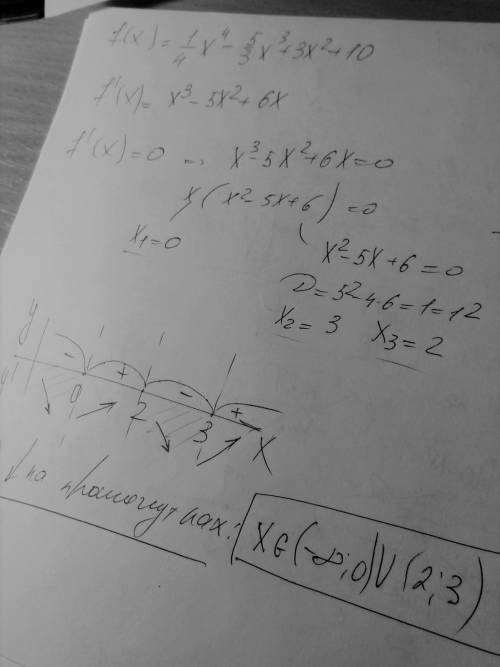 f(x) = 1/4 x⁴ - 5/3 x³ + 3x² + 10
f'(x) = x³ - 5x² + 6x
f'(x) = 0 ... x³ - 5x² + 6x = 0
x(x² - 5x + 6) = 0
x₁ = 0
x² - 5x + 6 = 0
D = 5² - 4·6 = 1 = 1²
x₂ = 3 x₃ = 2
y
- + - +
0 2 3 x
y'
↘ ↗ ↘ ↗
↓ на промежутках:
x ∈ (-∞; 0) ∪ (2; 3)